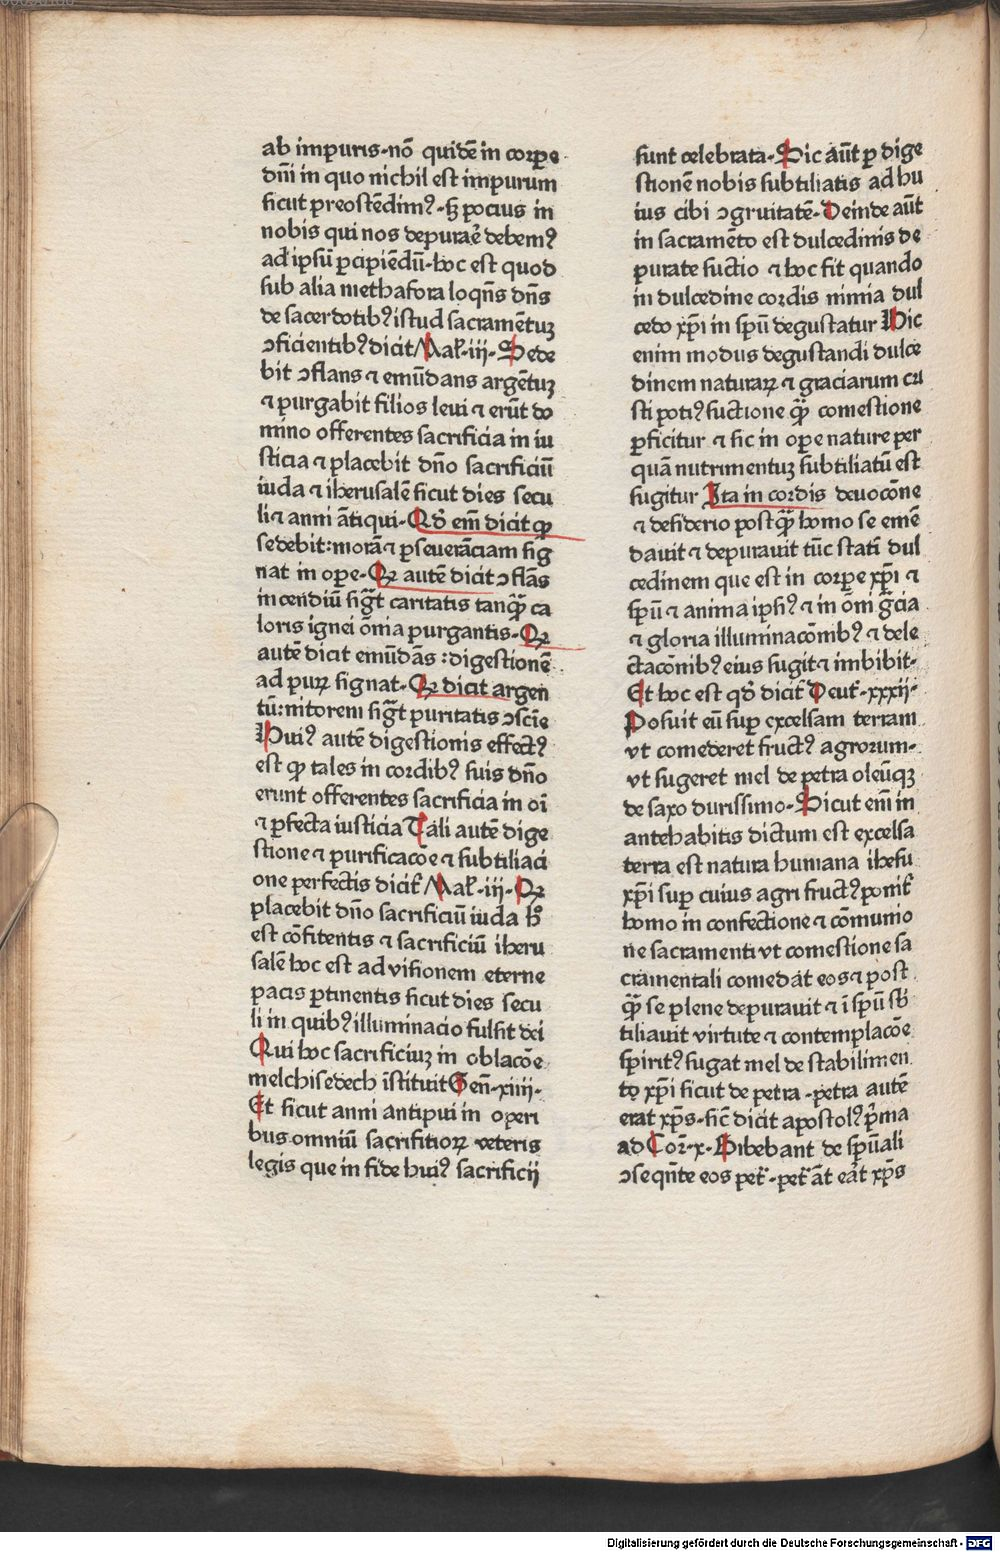 ab impuris·nō quidē in corꝑe
dn̄i in quo nichil est impurum
sicut preostēdimꝰ·sꝫ pocius in
nobis qui nos depurar̄e debemꝰ
ad ipsū ꝑcipiēdū·hoc est quod
sub alia methafora loqn̄s dn̄s
de sacerdotibꝰ istud sacramētuꝫ
ↄficientibꝰ dicit Mal̄·iii·Sede
bit ↄflans ⁊ emūdans argētuꝫ
⁊ purgabit filios leui ⁊ erūt do
mino offerentes sacrificia in iu
sticia ⁊ placebit dn̄o sacrificiū
iuda ⁊ iherusalē sicut dies secu
li ⁊ anni ātiqui·Qd̄ em̄ dicit ꝙ
sedebit:morā ⁊ ꝑseuerāciam sig
nat in oꝑe·Qꝫ autē dicit ↄflās
incendiū sigt̄ caritatis tanqͣ̄ ca
loris ignei ōnia purgantis·Qꝫ
autē dicit emūdās:digestionē
ad puꝝ signat·Qꝫ dicit argen
tū:nitorem sigt̄ puritatis ↄscīe
Huiꝰ autē digestionis effectꝰ
est ꝙ tales in cordibꝰ suis dn̄o
erunt offerentes sacrificia in oī
⁊ ꝑfecta iusticia Tali autē dige
stione ⁊ purificacōe ⁊ subtiliaci
one perfectis dicit̄ Mal̄·iii·Qꝫ
placebit dn̄o sacrificiū iuda hͦ
est cōfitentis ⁊ sacrificiū iheru
salē hoc est ad visionem eterne
pacis ꝑtinentis sicut dies secu
li in quibꝰ illuminacio fulsit dei
Qui hoc sacrificiuꝫ in oblacōe
melchisedech īstituit Gen̄·xiiii·
Et sicut anni antipui in operi
bus omniū sacrifitioꝝ veteris
legis que in fide huiꝰ sacrificij
sunt celebrata·Sic aūt ꝑ dige
stionē nobis subtiliatis ad hu
ius cibi ↄgruitatē·Deinde aūt
in sacramēto est dulcedinis de
purate suctio ⁊ hoc fit quando
in dulcedine cordis nimia dul
cedo xp̄i in sp̄u degustatur Hic
enim modus degustandi dulce
dinem naturaꝝ ⁊ graciarum cri
sti potiꝰ suctione qͣ̄ comestione
ꝑficitur ⁊ sic in oꝑe nature per
quā nutrimentuꝫ subtiliatū est
sugitur Ita in cordis deuocōne
⁊ desiderio postqͣ̄ homo se emē
dauit ⁊ depurauit tūc statī dul
cedinem que est in corꝑe xp̄i ⁊
sp̄u ⁊ anima ipsiꝰ ⁊ in ōmi gr̄cia
⁊ gloria illuminacōnibꝰ ⁊ dele
ctacōnibꝰ eius sugit ⁊ imbibit·
Et hoc est qd̄ dicit̄ Deut̄·xxxii·
Posuit eū suꝑ excelsam terram
vt comederet fructꝰ agrorum·
vt sugeret mel de petra oleūqꝫ
de saxo durissimo·Sicut em̄ in
antehabitis dictum est excelsa
terra est natura humana ihesu
xp̄i suꝑ cuius agri fructꝰ ponit̄
homo in confectione ⁊ cōmunio
ne sacramenti vt comestione sa
cramentali comedāt eos ⁊ post
qͣ̄ se plene depurauit ⁊ ī sp̄u sb̄
tiliauit virtute ⁊ contemplacōe
spiritꝰ sugat mel de stabilimen
to xp̄i sicut de petra·petra autē
erat xp̄s·sic̄ dicit apostolꝰ pͥma
ad Cor̄·x·Bibebant de sp̄uali
ↄseqn̄te eos pet̄·pet̄ āt eāt xp̄s